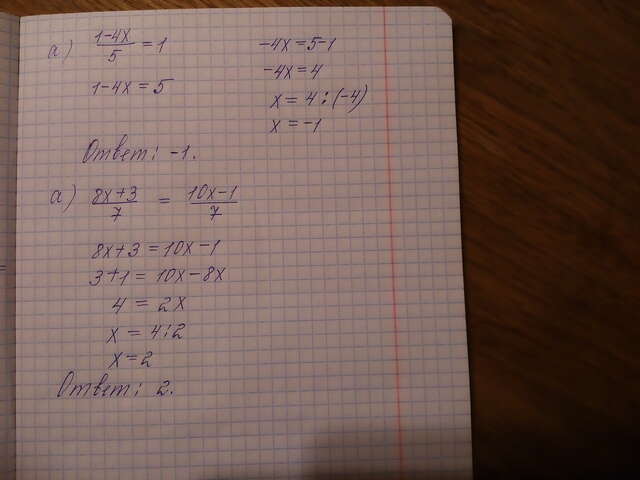 а) (1-4x)/5 = 1
1-4x = 5
-4x = 5-1
-4x = 4
x = 4 : (-4)
x = -1
Ответ: -1.
а) (8x+3)/7 = (10x-1)/7
8x+3 = 10x-1
3+1 = 10x-8x
4 = 2x
x = 4:2
x = 2
Ответ: 2.